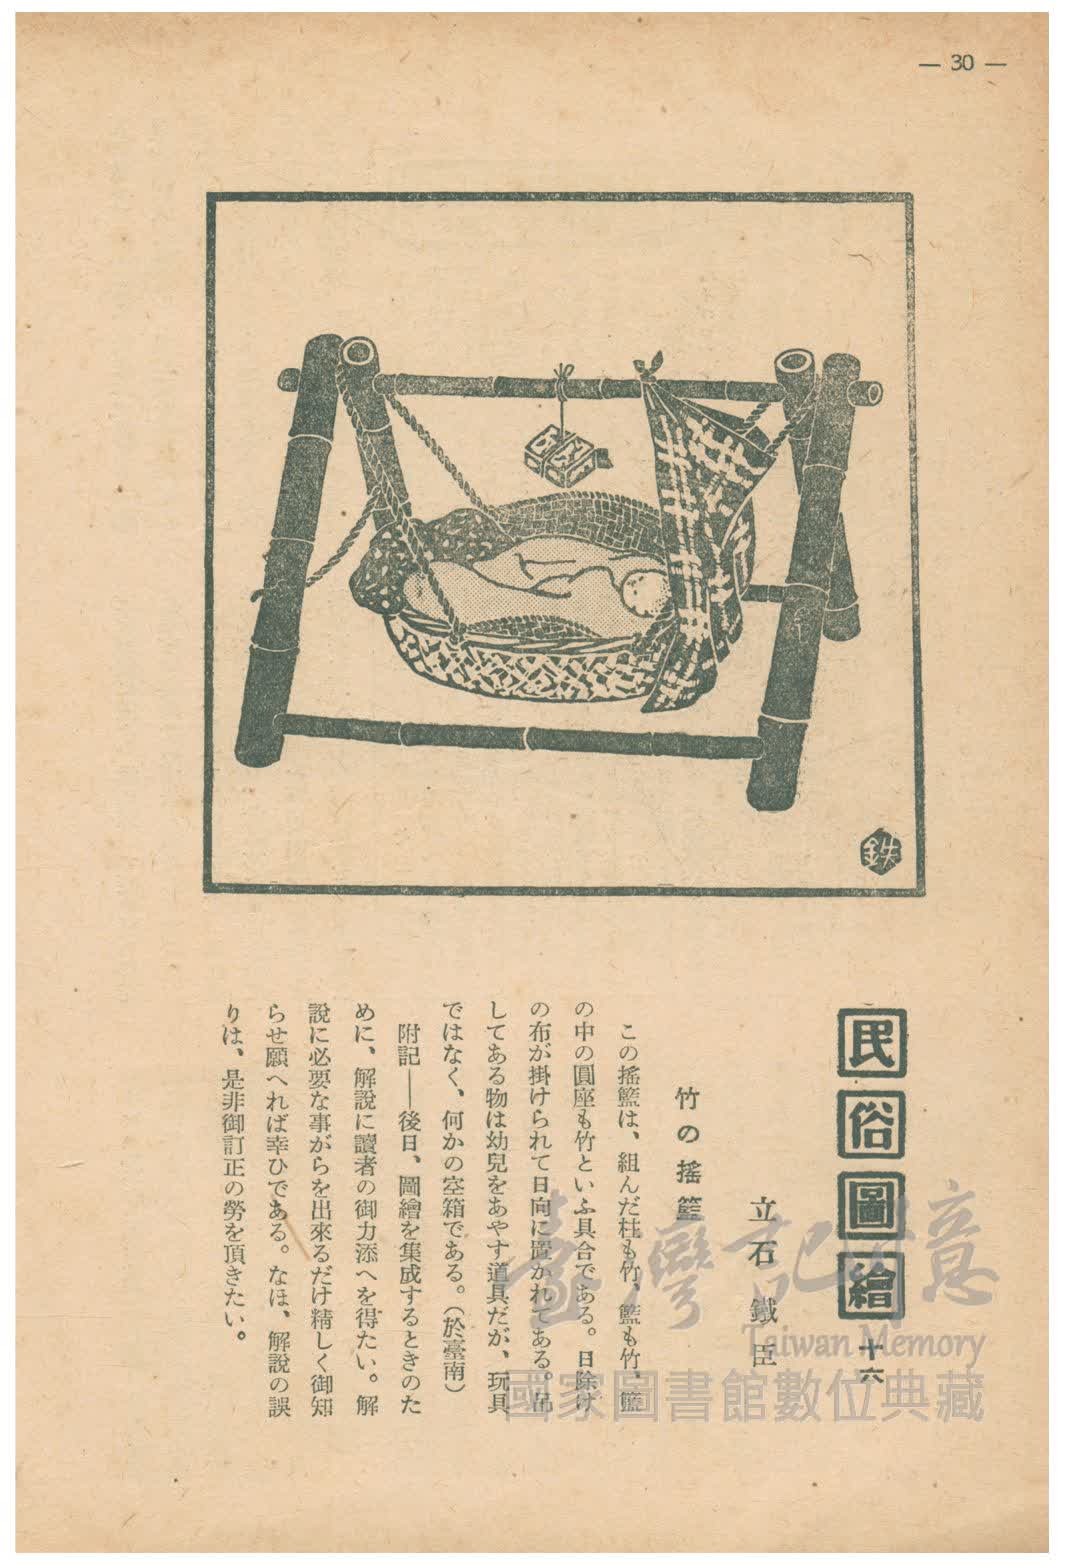 — 30 —
鉄
民俗圖繪 十六
立石 鐵臣
竹の搖籃
この搖籃は、組んだ柱も竹、籃も竹、籃
の中の圓座も竹といふ具合である。日除け
の布が掛けられて日向に置かれてある。吊
してある物は幼兒をあやす道具だが、玩具
ではなく、何かの空箱である。（於臺南）
附記——後日、圖繪を集成するときのた
めに、解說に讀者の御力添へを得たい。解
說に必要な事がらを出來るだけ精しく御知
らせ願へれば幸ひである。なほ、解說の誤
りは、是非御訂正の勞を頂きたい。
臺灣記憶
Taiwan Memory
國家圖書館數位典藏